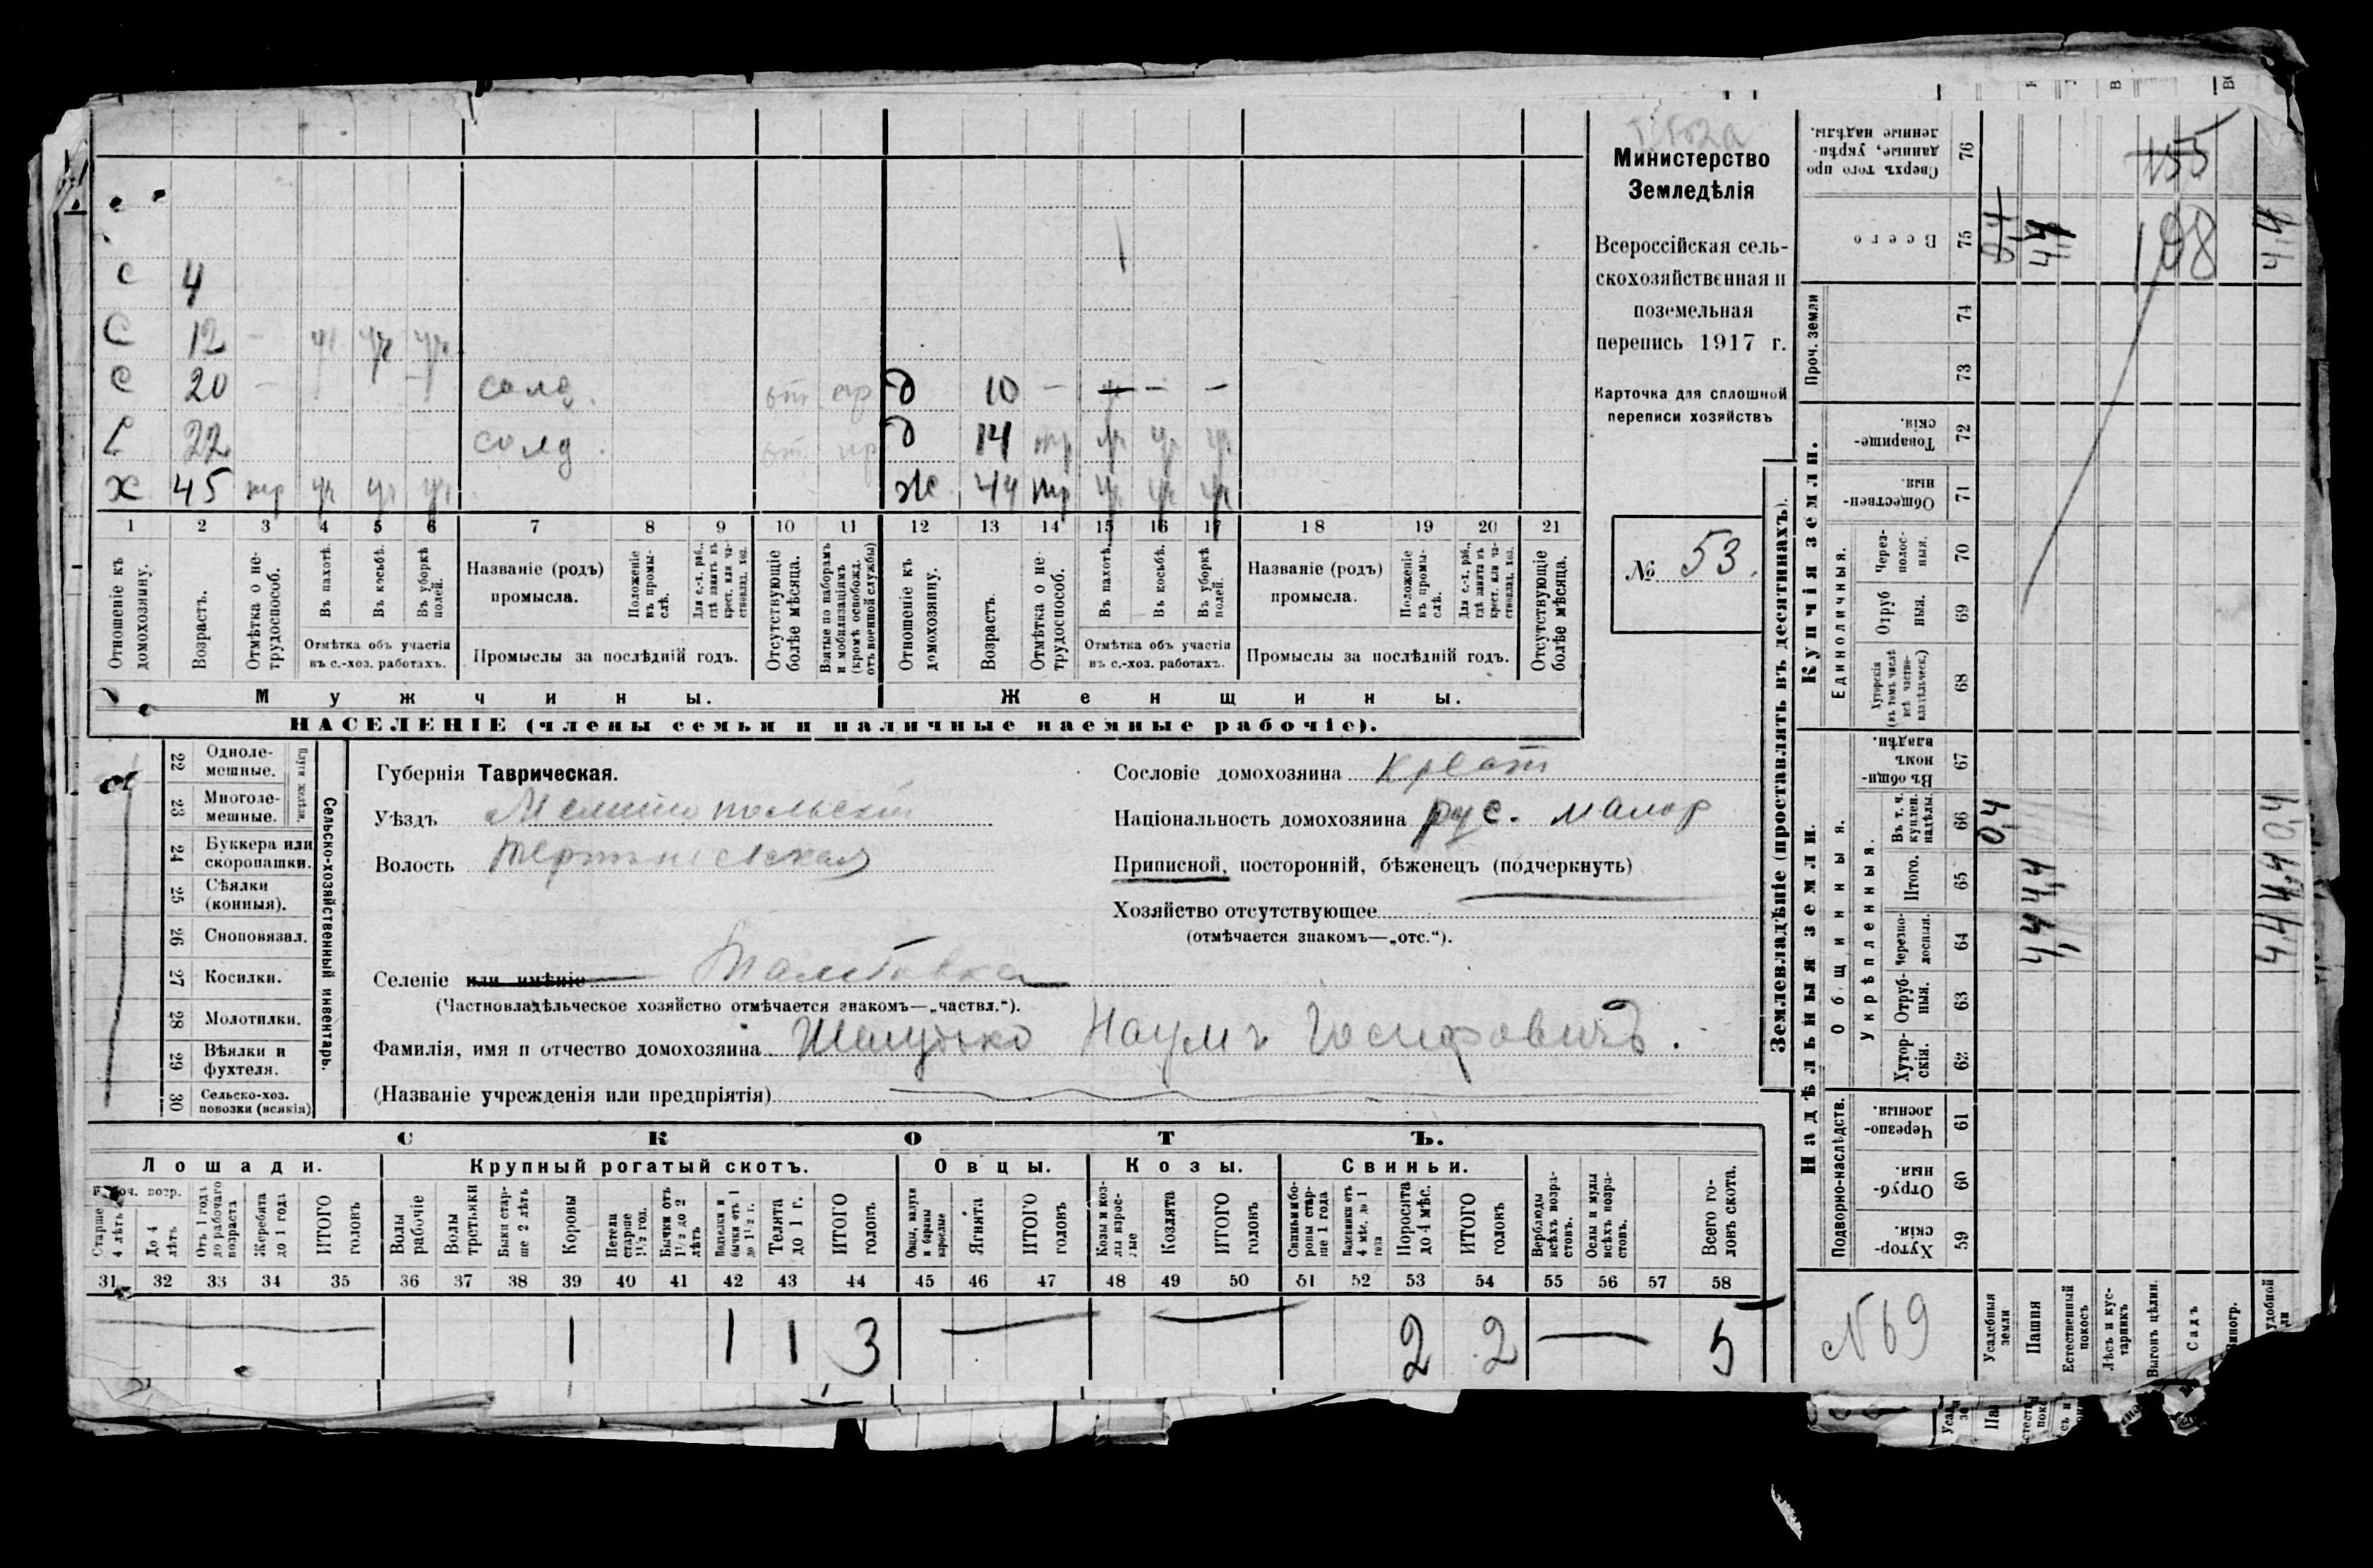 С 4
С 12 – уч уч уч
С 20 – солд. от пр д 10 – – – –
С 22 солд. от пр д 14 пр уч уч уч
Х 45 пр уч уч уч Ж 44 пр уч уч уч
1 2 3 4 5 6 7 8 9 10 11 12 13 14 15 16 17 18 19 20 21
Отношеніе къ домохозяину.
Возрастъ.
Отмѣтка о не-трудоспособ.
Въ пахотѣ.
Въ косьбѣ.
Въ уборкѣ полей.
Отмѣтка объ участіи
въ с.-хоз. работахъ.
Названіе (родъ)
промысла.
Положеніе въ промы-слѣ.
Для с.-х. раб., гдѣ занятъ въ крест. или ча-стновлад. хоз.
Промыслы за послѣдній годъ.
Отсутствующіе болѣе мѣсяца.
Взятые по наборамъ и мобилизаціямъ (кромѣ освобожд. отъ военной службы)
Отношеніе къ домохозяину.
Возрастъ.
Отмѣтка о не-трудоспособ.
Въ пахотѣ.
Въ косьбѣ.
Въ уборкѣ полей.
Отмѣтка объ участіи
въ с.-хоз. работахъ.
Названіе (родъ)
промысла.
Положеніе въ промы-слѣ.
Для с.-х. раб., гдѣ занята въ крест. или ча-стновлад. хоз.
Промыслы за послѣдній годъ.
Отсутствующіе болѣе мѣсяца.
Мужчины. Женщины.
НАСЕЛЕНІЕ (члены семьи и наличные наемные рабочіе).
Министерство
Земледѣлія
Всероссійская сель-
скохозяйственная и
поземельная
перепись 1917 г.
Карточка для сплошной
переписи хозяйствъ
№ 53.
22 Одноле-мешные.
23 Многоле-мешные.
Плуги желѣзн.
24 Буккера или скоропашки.
25 Сѣялки (конныя).
26 Сноповязал.
27 Косилки.
28 Молотилки.
29 Вѣялки и фухтеля.
30 Сельско-хоз. повозки (всякія)
Сельско-хозяйственный инвентарь.
Губернія Таврическая.
Уѣздъ Мелитопольскій
Волость
Селеніе или имѣніе
(Частновладѣльческое хозяйство отмѣчается знакомъ—„частвл.“).
Фамилія, имя и отчество домохозяина Шалудько Наумъ Іосифовичъ.
(Названіе учрежденія или предпріятія)
Сословіе домохозяина
Національность домохозяина рус. малор
Приписной, посторонній, бѣженецъ (подчеркнуть)
Хозяйство отсутствующее
(отмѣчается знакомъ—„отс.“).
СКОТЪ.
Лошади. Крупный рогатый скотъ. Овцы. Козы. Свиньи.
Рабоч. возр.
Старше 4 лѣтъ
До 4 лѣтъ
Отъ 1 года до рабочаго возраста
Жеребята до 1 года
ИТОГО головъ
Волы рабочіе
Волы третьяки
Быки стар-ше 2 лѣтъ
Коровы
Нетели старше 1½ год.
Бычки отъ 1½ до 2 лѣтъ
Подтелки и бычки отъ 1 до 1½ г.
Телята до 1 г.
ИТОГО головъ
Овцы, валухи и бараны взрослые
Ягнята
ИТОГО головъ
Козы и коз-лы взрос-лые
Козлята
ИТОГО головъ
Свиньи и бо-ровы стар-ше 1 года
Подсвинки отъ 4 мѣс. до 1 года
Поросята до 4 мѣс.
ИТОГО головъ
Верблюды всѣхъ возра-стовъ.
Ослы и мулы всѣхъ возра-стовъ.
Всего го-ловъ скота.
31 32 33 34 35 36 37 38 39 40 41 42 43 44 45 46 47 48 49 50 51 52 53 54 55 56 57 58
1 1 1 3 — — 2 2 — 5
Землевладѣніе (проставлять въ десятинахъ).
Надѣльныя земли. Купчія земли. Проч. земли
Подворно-наслѣдств. Общинныя. Укрѣпленныя. Единоличныя.
Хутор-скія. 59
Отруб-ныя. 60
Черезпо-лосныя. 61
Хутор-скія. 62
Отруб-ныя. 63
Черезпо-лосныя. 64
Итого. 65
Въ т. ч. куплен. надѣлы. 66
Въ общи-номъ владѣн. 67
Хуторскія (въ томъ числѣ всѣ частно-владѣльческ.) 68
Отрубныя. 69
Через-полос-ныя. 70
Обществен-ныя. 71
Товарище-скія. 72
73
74
Всего 75
Сверхъ того про-данные, укрѣп-ленные надѣлы. 76
№ 69
Усадебныя земли 04
Пашня 44 44
Естественный покосъ
Лѣсъ и кус-тарникъ
Выгонъ цѣлин. 198 155
Садъ
Виногр.
удобной